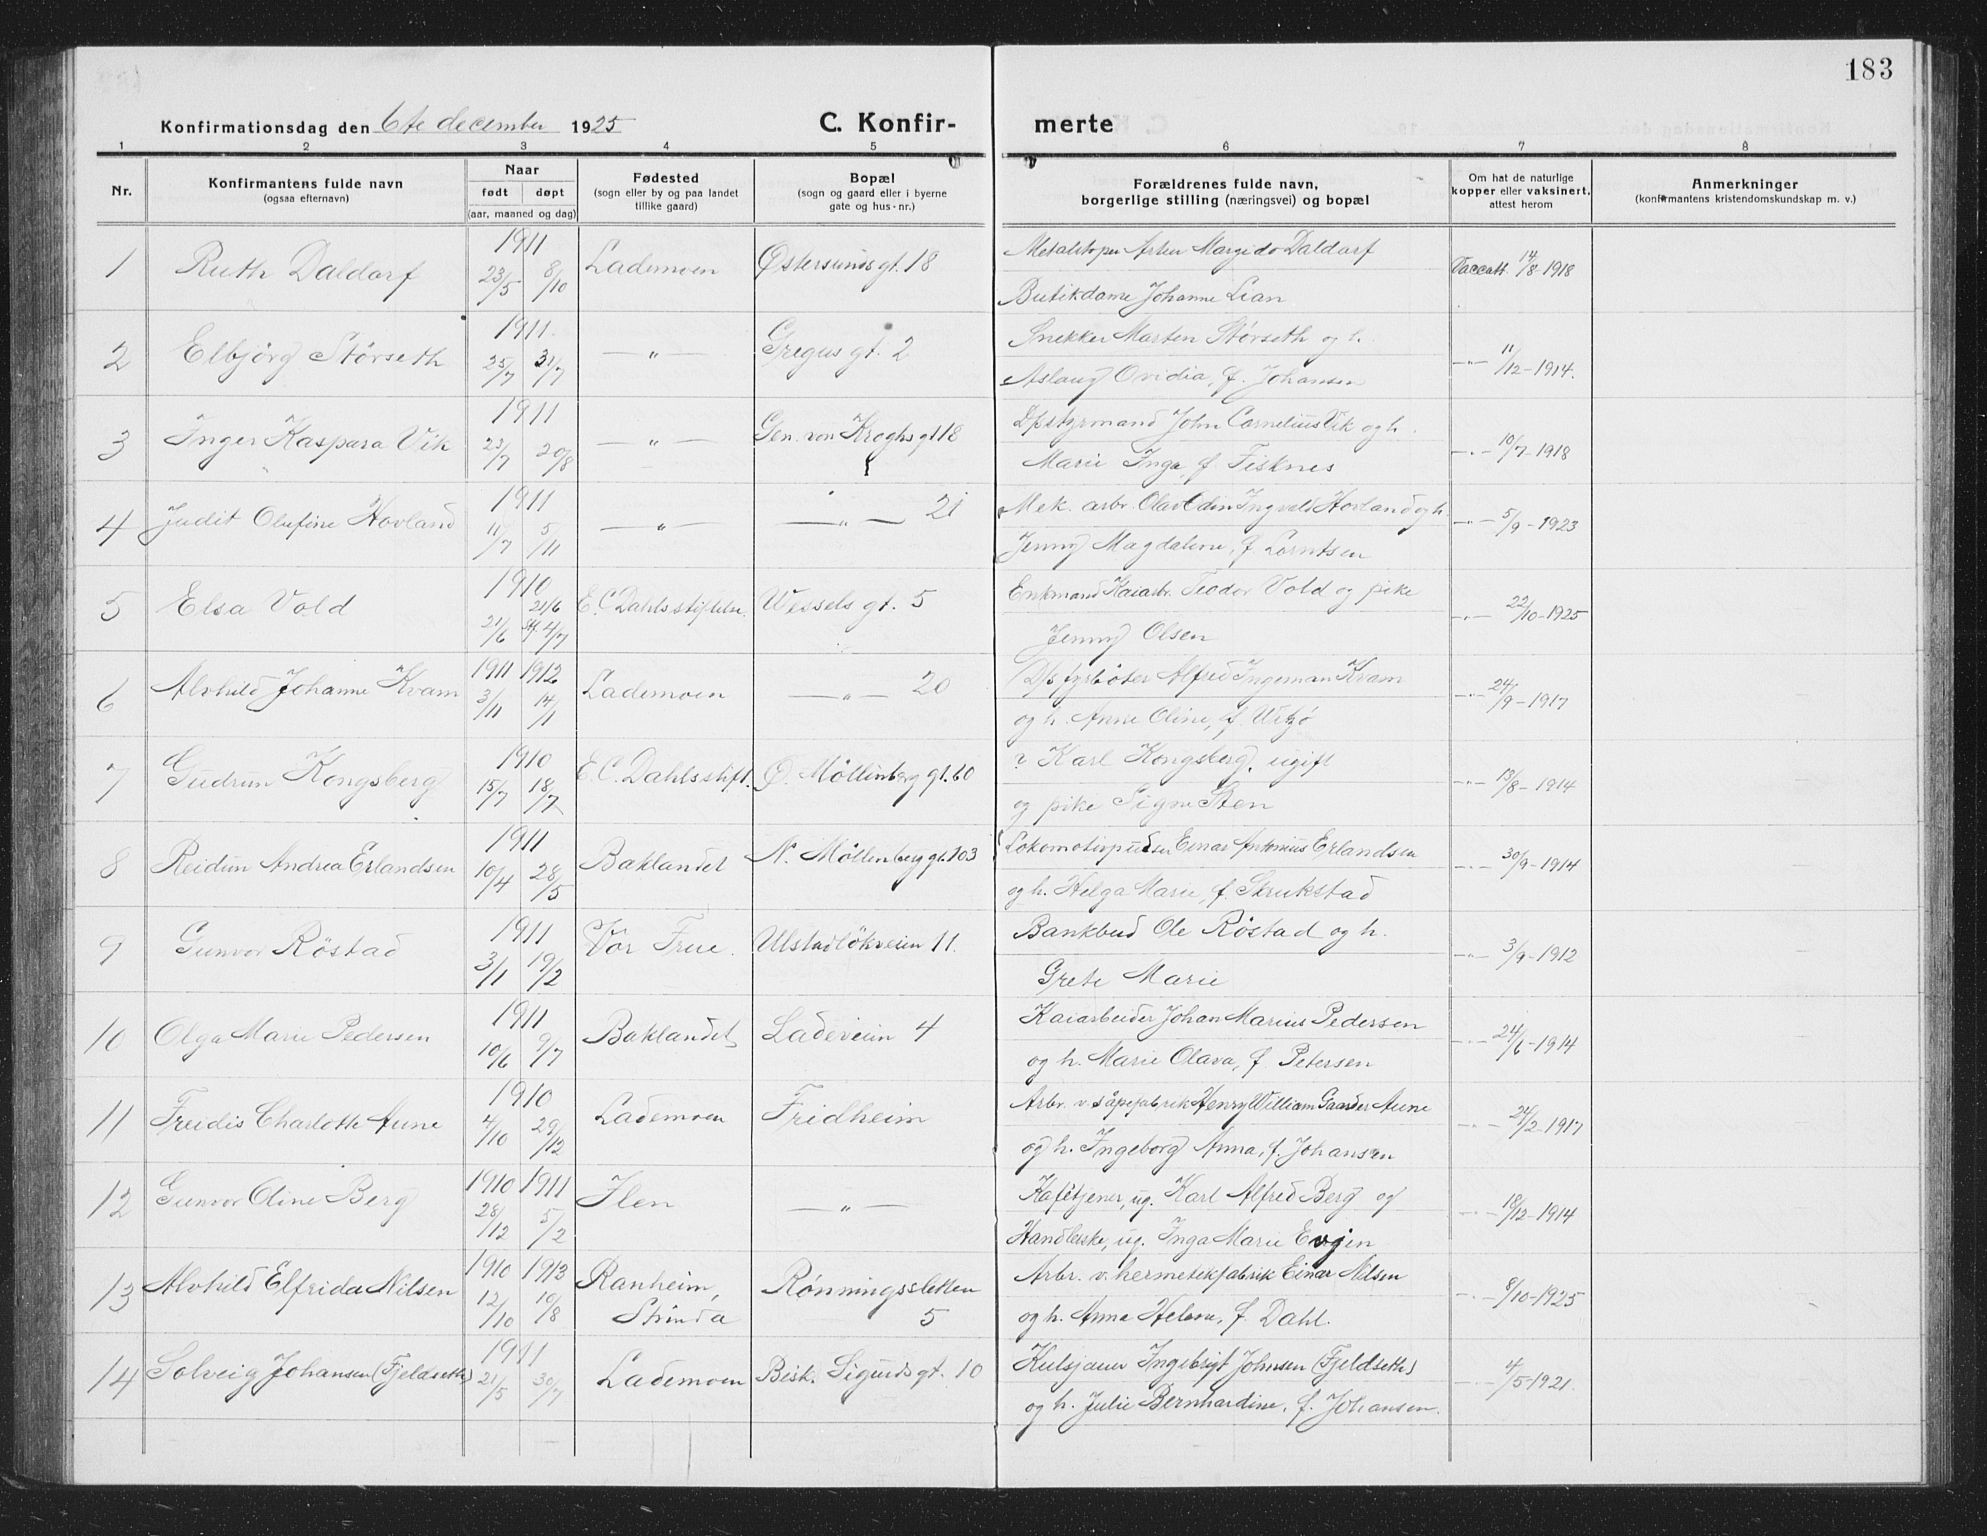 183
Konfirmationsdag den 6te december 1925 C. Konfir- merte
1 2 3 4 5 6 7 8
Nr.
Konfirmantens fulde navn
(ogsaa efternavn)
Naar
født døpt
(aar, maaned og dag)
Fødested
(sogn eller by og paa landet
tillike gaard)
Bopæl
(sogn og gaard eller i byerne
gate og hus-nr.)
Forældrenes fulde navn,
borgerlige stilling (næringsvei) og bopæl
Om hat de naturlige
kopper eller vaksinert,
attest herom
Anmerkninger
(konfirmantens kristendomskundskap m. v.)
1 Ruth Daldorf 1911 23/5 8/10 Lademoen Østersunds gt. 18 Daldorf
Butikdame Johanne Lian Vaccatt. 14/8-1918
2 Elbjörg Störseth 1911 25/7 31/7 — „ — Gregus gt. 2 Snekker Marten Störseth og h.
Aslaug Ovidia, f. Johansen — „ — 11/12-1914.
3 Inger Kaspara Vik 1911 23/7 20/8 — „ — Gen. von Kroghs gt 18 John Cornelius Vik og h.
Marie Inga, f. Fisknes — „ — 10/7-1918
4 Judit Olufine Hovland 1911 11/7 5/11 — „ — — „ — 21 Mek. arbr. Olav Edin Ingvald Hovland og h.
Jenny Magdalene, f. Lorntsen — „ — 5/9-1923
5 Elsa Vold 1910 21/6 21/6 4/7 E. C. Dahls stiftelse Wessels gt. 5 Enkmand Kaiarbr. Teodor Vold og pike
Jenny Olsen — „ — 22/10-1925
6 Alvhild Johanne Kvam 1911 1912 3/11 14/1 Lademoen — „ — 20 D/s fyrböter Alfred Ingeman Kvam
og h. Anne Oline, f. Utzö — „ — 24/9-1917
7 Gudrun Kongsberg 1910 15/7 18/7 E. C. Dahls stift. Ö. Möllenberg gt. 60 ? Karl Kongsberg, ugift
og pike Signe Sten — „ — 13/8-1914
8 Reidun Andrea Erlandsen 1911 10/4 28/5 Baklandet N. Möllenberg gt. 103 Lokomotivpudser Einar Antonius Erlandsen
og h. Helga Marie, f. Skrukstad — „ — 30/9-1914
9 Gunvor Röstad 1911 3/1 19/2 Vor Frue. Ulstadlökveien 11. Bankbud Ole Röstad og h.
Grete Marie — „ — 3/9-1912
10 Olga Marie Pedersen 1911 10/6 9/7 Baklandet Ladeveien 4 Kaiarbeider Johan Marius Pedersen
og h. Marie Olava, f. Petersen — „ — 24/6-1914
11 Freidis Charlotte Aune 1910 4/10 29/12 Lademoen Fridheim Arbr. v. såpefabrik Henry William Gaarder Aune
og h. Ingeborg Anna, f. Johansen — „ — 24/2-1917
12 Gunvor Oline Berg 1910 1911 28/12 5/2 Ilen — „ — Kafétjener, ug. Karl Alfred Berg og
Handlerske, ug. Inga Marie Evjen — „ — 18/12-1914
13 Alvhild Elfrida Nilsen 1910 1913 12/10 10/8 Ranheim,
Strinda Rønningssletten
5 Arbr. v. hermetikfabrik Einar Nilsen
og h. Anna Helene, f. Dahl. — „ — 8/10-1925
14 Solveig Johansen (Fjeldseth) 1911 21/5 30/7 Lademoen Bisk. Sigurds gt. 10 Kulsjauer Ingebrigt Johnsen (Fjeldseth)
og h. Julie Bernhardine, f. Johansen. — „ — 4/5-1921.